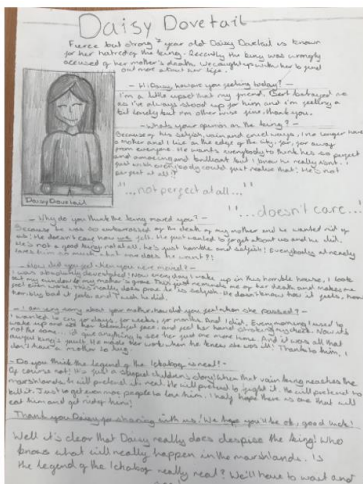 Daisy Dovetail
Fierce but strong 7 year old Daisy Dovetail is known
for her hatred of the king. Recently the king was wrongly
accused of her mother's death. We caught up with her to find
out more about her life.
- Hi Daisy, how are you feeling today? -
I'm a little upset that my friend, Bert betrayed me
as I've always stood up for him and I'm feeling a
bit lonely but on other wise fine, thank you.
- What's your opinion on the king? -
Because of his selfish, vain and cruel ways, I no longer have
a mother and I live on the edge of the city, far, far away
from everyone. He wants everybody to think he's so perfect
and amazing and brilliant but I know he really isn't.
I just wish everybody could just realise that. He's not
perfect at all!
Daisy Dovetail
"...not perfect at all..."
"...doesn't care..."
- Why do you think the king moved you? -
Because he was so embarrassed by the death of my mother and he wanted rid of
us. He doesn't care how we felt. He just wanted to forget about us and he did.
He's not a good king not at all, he's just horrible and selfish!
- How did you feel when you were moved? -
I was absolutely devastated! Now every day I wake up in this horrible house, I look
out my window to my mother's grave. This just reminds me of her death and makes me
her big bad it feels and I wish he did.
- I'm very sorry about your mother, how did you feel when she passed? -
I wanted to cry for days, for weeks, for months. But I didn't. Every morning I used to
wake up and see her beautiful face, and feel her hand stroking my cheek. Now it's
not the same.. I'd give anything to see her give me one more hug. And it was all that
stupid king's fault. He made her work when he knew she was ill! Thanks to him, I
don't have a mother to hug.
- Do you think the legend of the Ickabog is real? -
Of course not! It's just a stupid children's story! When that vain king reaches the
marshlands, he will pretend it real. He will pretend to fight it. He will pretend to
kill it. Just to get even more people to love him. I half hope there is one that will
eat him and get rid of him!
Thank you Daisy for sharing with us! We hope you'll be ok, good luck!
Well it's clear that Daisy really does despise the king! Who
knows what will really happen in the marshlands. Is
the legend of the Ickabog really real? We'll have to wait and